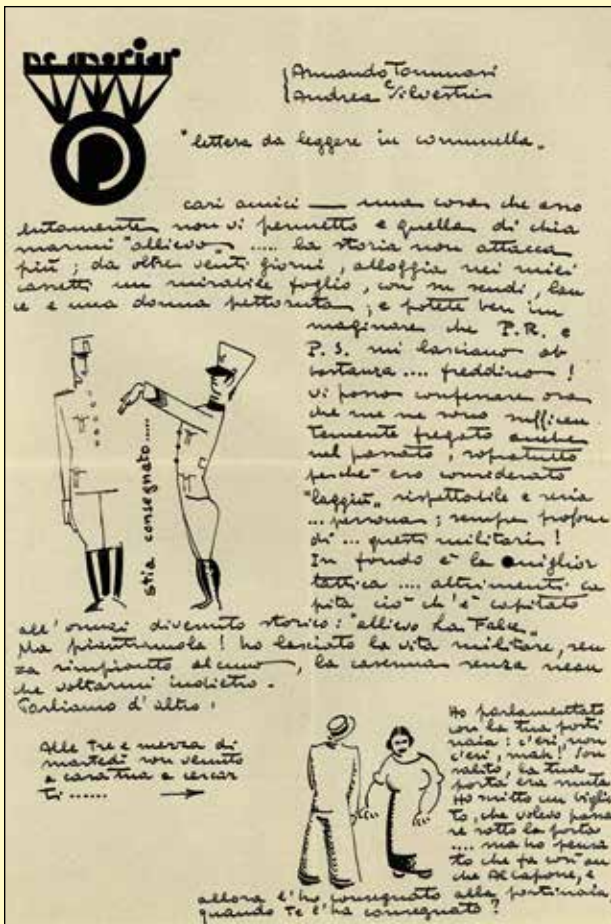 Armando Tommasi
e
Andrea Silvestri
"lettera da leggere in comunella„
cari amici — una cosa che asso
lutamente non vi permetto è quella di chia
marmi "allievo„ ..... la storia non attacca
più ; da oltre venti giorni, alloggia nei miei
cassetti un mirabile foglio, con su scudi, lan
ce e una donna pettoruta ; e potete ben im
maginare che P.R. e
P.S. mi lasciano ab
bastanza .... freddino !
Vi posso confessare ora
che me ne sono sufficien
temente fregato anche
nel passato, sopratutto
perchè ero considerato
"laggiù„ rispettabile e seria
... persona ; sempre profon
di ... questi militari !
In fondo è la miglior
tattica .... altrimenti ca
pita ciò ch'è capitato
all'ormai divenuto storico : "allievo La Falce„
Ma piantiamola ! ho lasciato la vita militare, sen
za rimpianto alcuno, la caserma senza nean
che voltarmi indietro.
Parliamo d'altro :
stia consegnato.....
Alle Tre e mezza di
martedì son venuto
a casa tua a cercar
ti ......
Ho parlamentato
con la tua porti
naia : c'eri, non
c'eri, mah ! Son
salito, la tua
porta era muta
Ho scritto un bigliet
to, che volevo passa
re sotto la porta
.... ma ho pensa
to che fa così an
che Al Capone, e
allora l'ho consegnato alla portinaia
quando Te l'ha consegnato ?